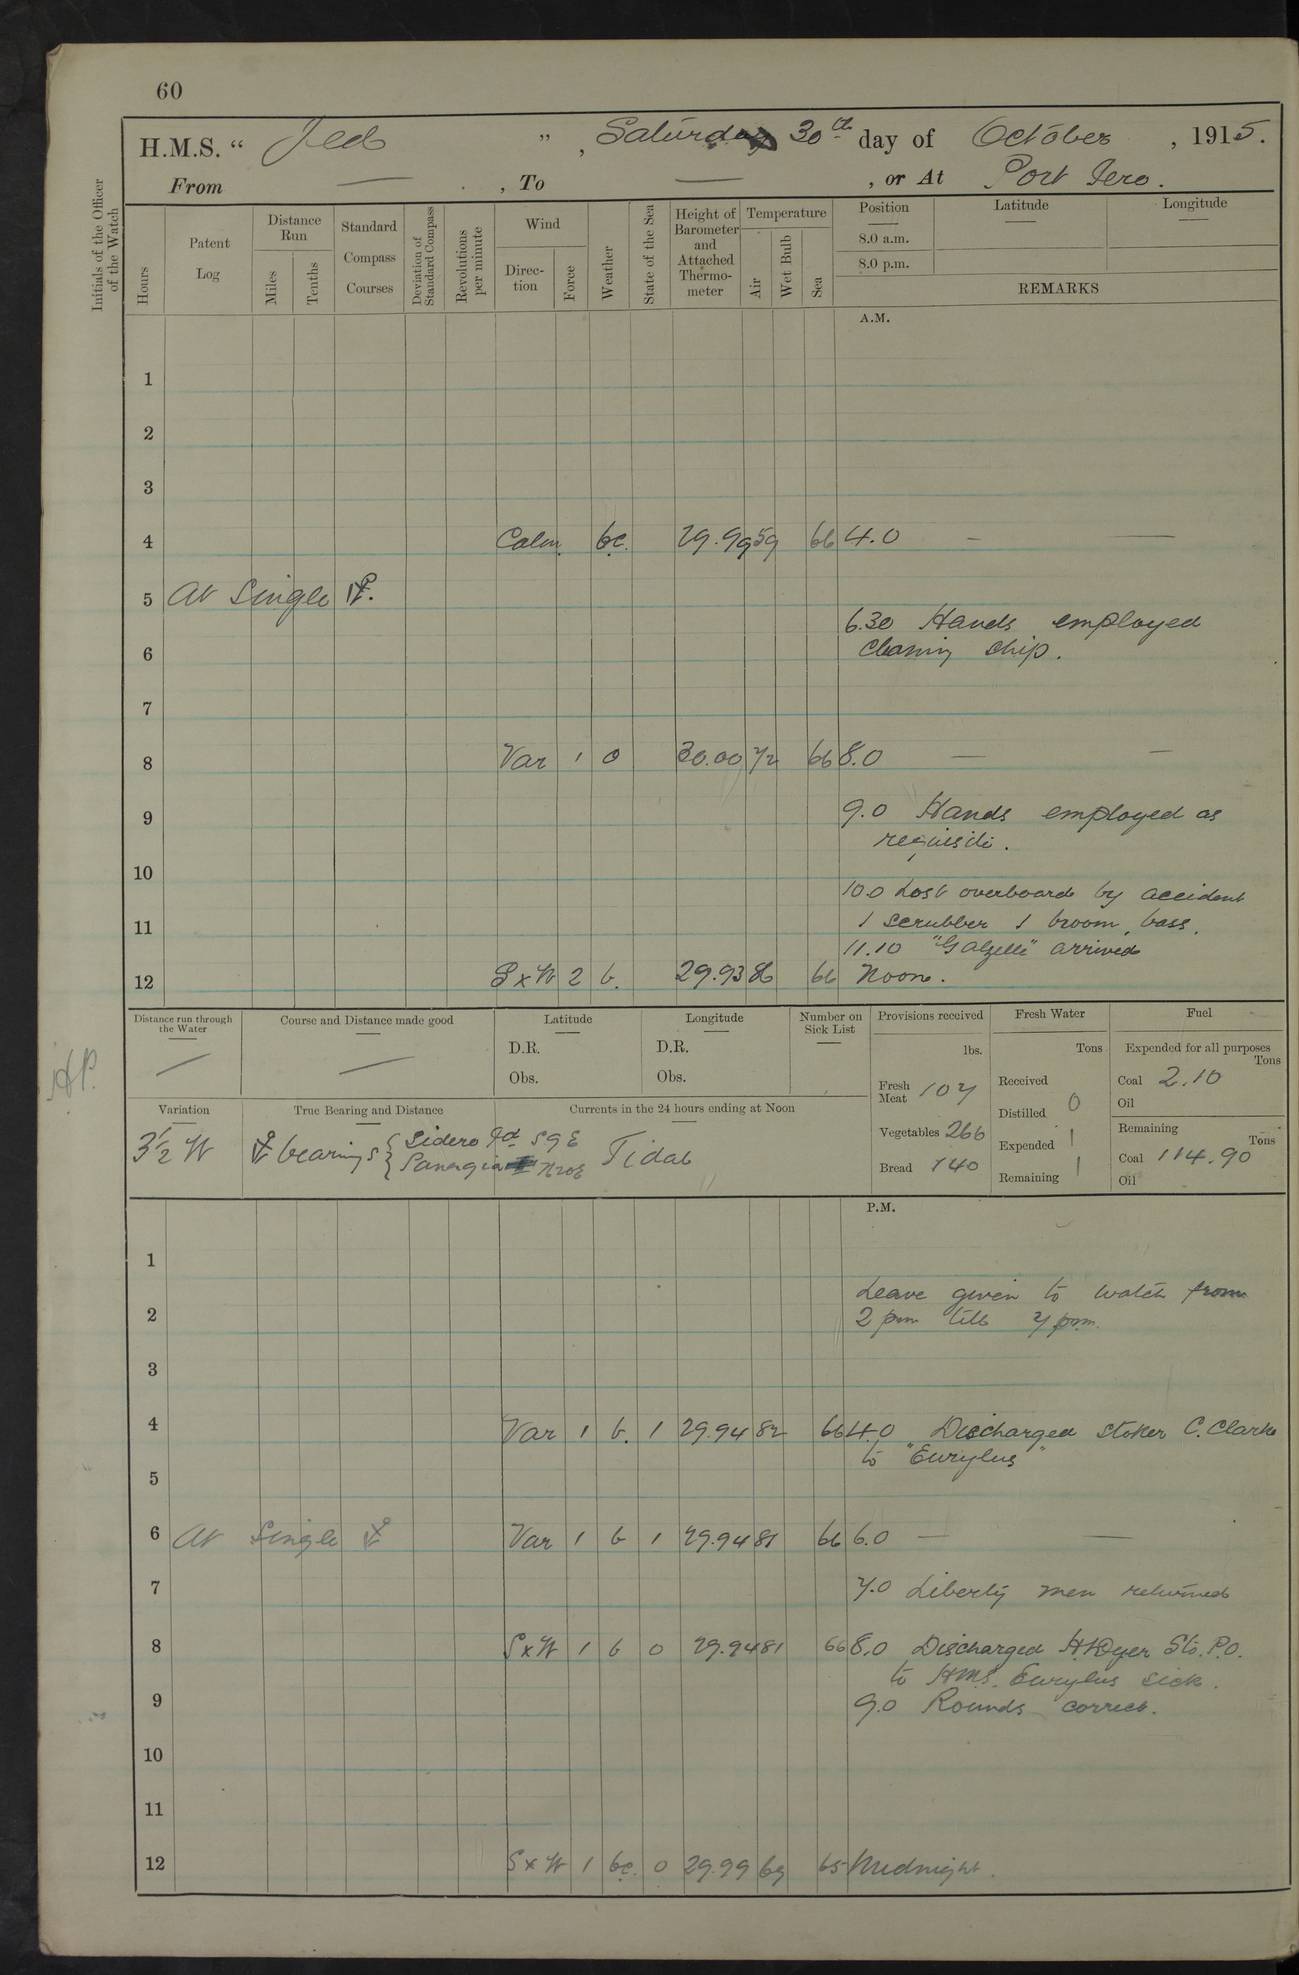 60
H.M.S. “ Jed ” , Saturday 30th day of October , 1915.
From — , To — , or At Port Iero.
Initials of the Officer of the Watch
Hours
Patent Log
Distance Run
Miles
Tenths
Standard Compass Courses
Deviation of Standard Compass
Revolutions per minute
Wind
Direction
Force
Weather
State of the Sea
Height of Barometer and Attached Thermometer
Temperature
Air
Wet Bulb
Sea
Position
Latitude
Longitude
8.0 a.m.
8.0 p.m.
REMARKS
A.M.
1
2
3
4 Calm bc. 29.99 59 66 4.0 — —
5 At Single ⚓.
6.30 Hands employed
6 cleaning ship.
7
8 Var 1 o 30.00 72 66 8.0 — —
9 9.0 Hands employed as
requisite.
10
10.0 Lost overboard by accident
11 1 scrubber 1 broom, bass.
11.10 "Gazelle" arrived
12 SxW 2 b. 29.93 86 66 Noon.
Distance run through the Water
—
Course and Distance made good
—
Latitude
D.R.
Obs.
Longitude
D.R.
Obs.
Number on Sick List
Provisions received
lbs.
Fresh Meat 107
Vegetables 266
Bread 140
Fresh Water
Tons
Received
Distilled 0
Expended 1
Remaining 1
Fuel
Expended for all purposes
Tons
Coal 2.10
Oil
Remaining
Tons
Coal 114.90
Oil
Variation
3½ W
True Bearing and Distance
⚓ bearings { Sidero Id S9E
Panagia N20E
Currents in the 24 hours ending at Noon
Tidal
P.M.
1
Leave given to watch from
2 2 pm till 7 pm.
3
4 Var 1 b. 1 29.94 82 66 4.0 Discharged Stoker C. Clarke
to "Euryalus"
5
6 At Single ⚓ Var 1 b 1 29.94 81 66 6.0 — —
7 7.0 Liberty men returned
8 SxW 1 b 0 29.94 81 66 8.0 Discharged H. Dyer Sto. P.O.
to HMS. Euryalus sick.
9 9.0 Rounds correct.
10
11
12 SxW 1 bc. 0 29.99 69 65 Midnight.